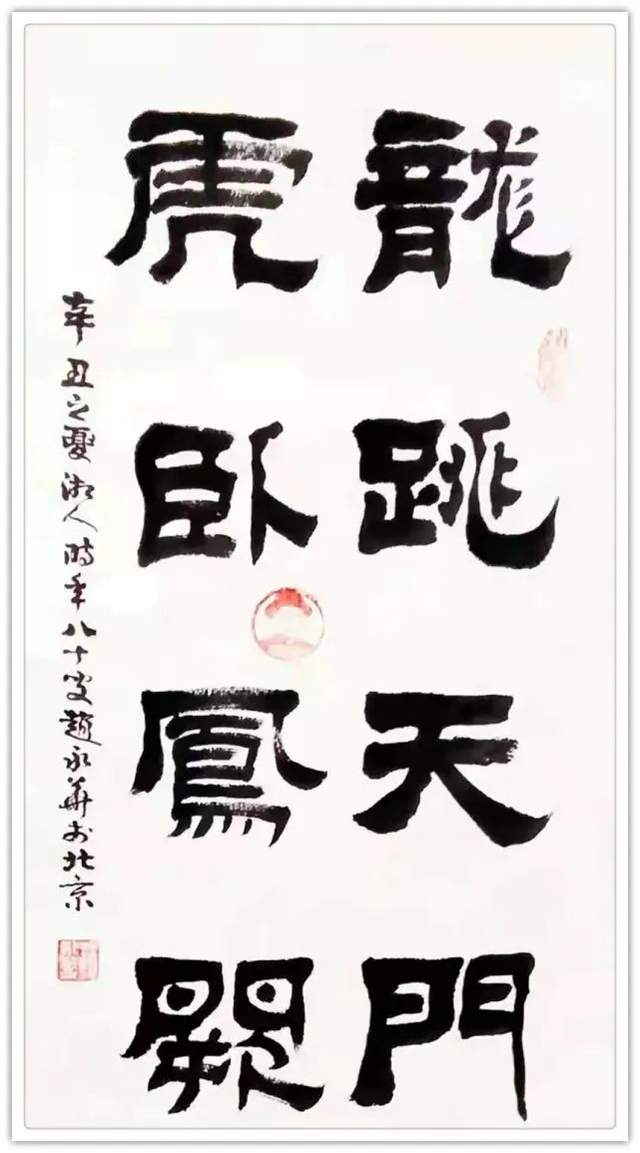 龍跳天門
虎卧鳳闕
辛丑之夏湘人時年八十叟趙永華於北京